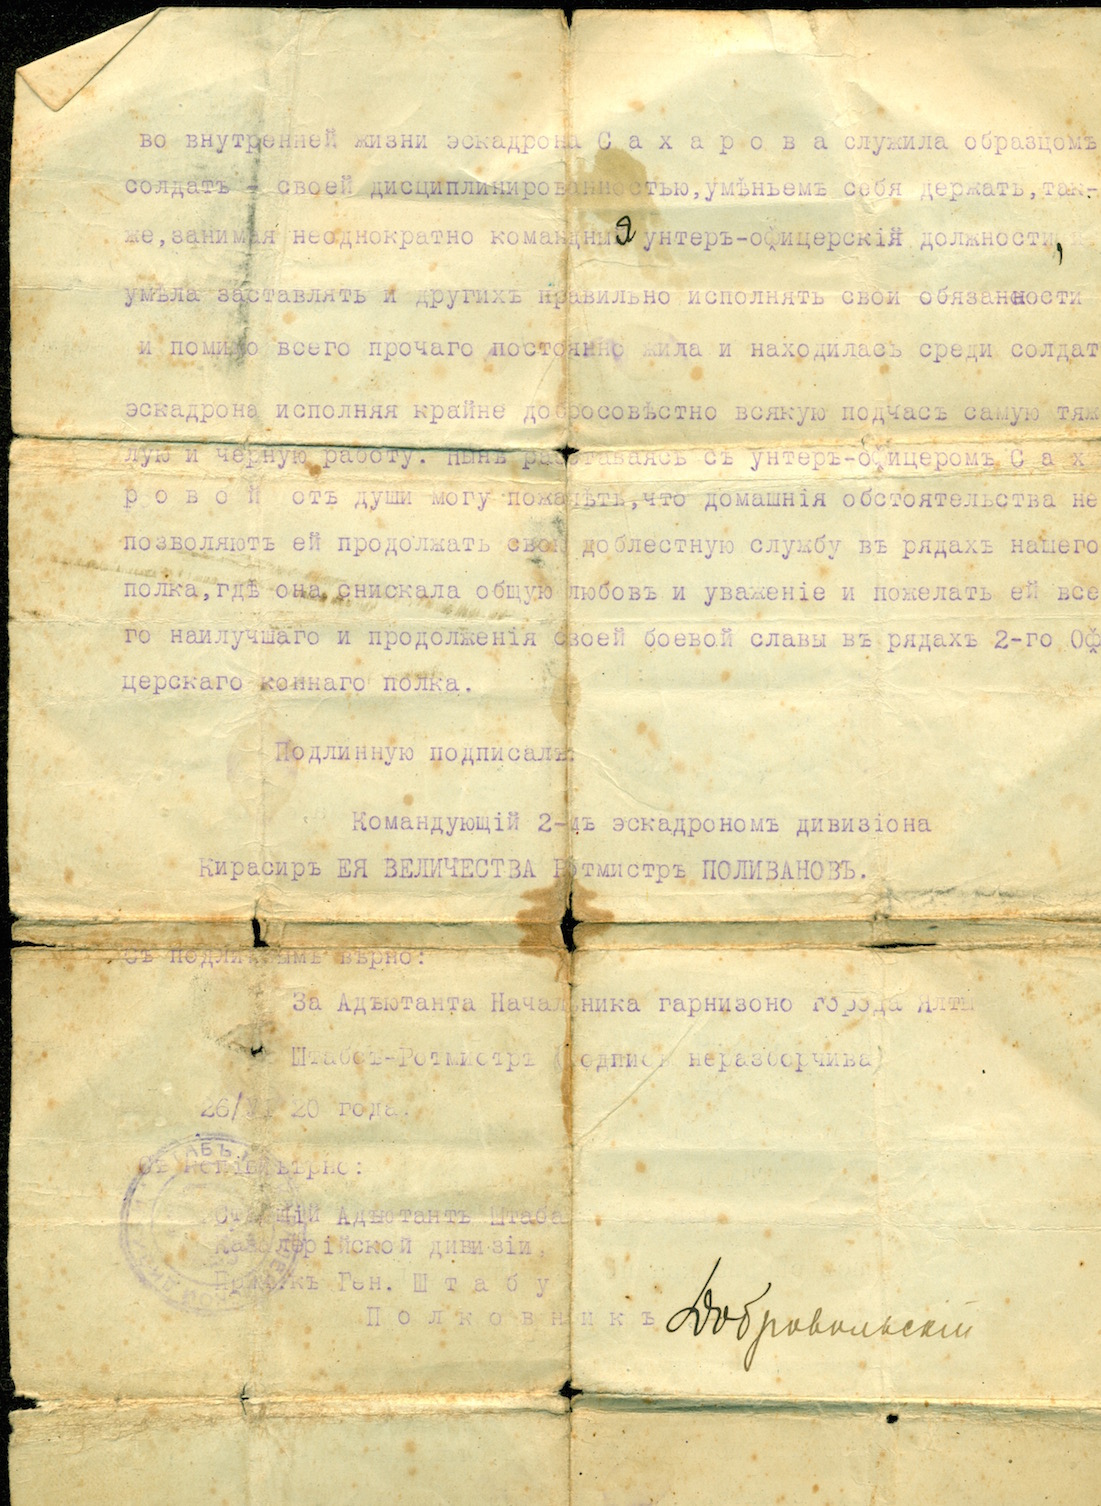 во внутренней жизни эскадрона С а х а р о в а служила образцомъ
солдатъ - своей дисциплинированностью,умѣньемъ себя держать,так-
же,занимая неоднократно командныя унтеръ-офицерскій должности,
умѣла заставлять и другихъ правильно исполнять свои обязанности
и помимо всего прочаго постоянно жила и находилась среди солдат
эскадрона исполняя крайне добросовѣстно всякую подчасъ самую тяж
лую и черную работу. Нынѣ разставаясь съ унтеръ-офицеромъ С а х
р о в о й отъ души могу пожалѣть,что домашнія обстоятельства не
позволяютъ ей продолжать свою доблестную службу въ рядахъ нашего
полка,гдѣ она снискала общую любовь и уваженіе и пожелать ей все
го наилучшаго и продолженія своей боевой славы въ рядахъ 2-го Оф
церскаго коннаго полка.
Подлинную подписалъ:
Командующій 2-мъ эскадрономъ дивизіона
Кирасиръ ЕЯ ВЕЛИЧЕСТВА Ротмистръ ПОЛИВАНОВЪ.
Съ подлиннымъ вѣрно:
За Адъютанта Начальника гарнизоно города Ялты
Штабсъ-Ротмистръ (подпись неразборчива)
26/VI 20 года.
Съ копіей вѣрно:
Старшій Адъютантъ Штаба
Кавалерійской дивизіи,
Ген. Ш т а б у
П о л к о в н и к ъ Добровольскій
ШТАБЪ